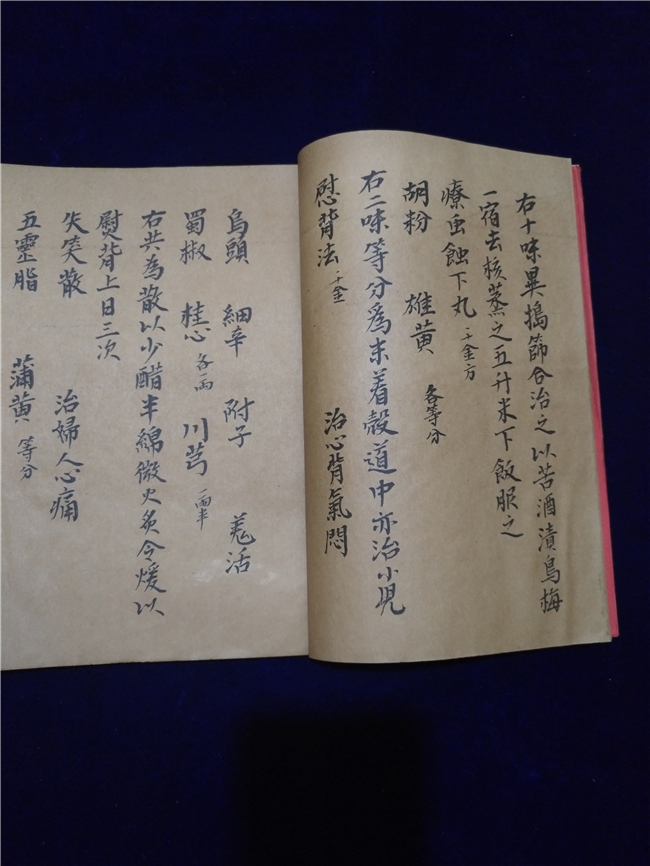 右十味異搗篩合治之以苦酒漬烏梅
一宿去核蒸之五升米下飯服之
療虫蝕下丸 千金方
胡粉 雄黄 各等分
右二味等分為末着穀道中亦治小児
慰背法 千金 治心背氣悶
烏頭 細辛 附子 羗活
蜀椒 桂心 各一両 川芎 一両半
右共為散以少醋半綿微火炙令煖以
熨背上日三次
失笑散 治婦人心痛
五靈脂 蒲黄 等分